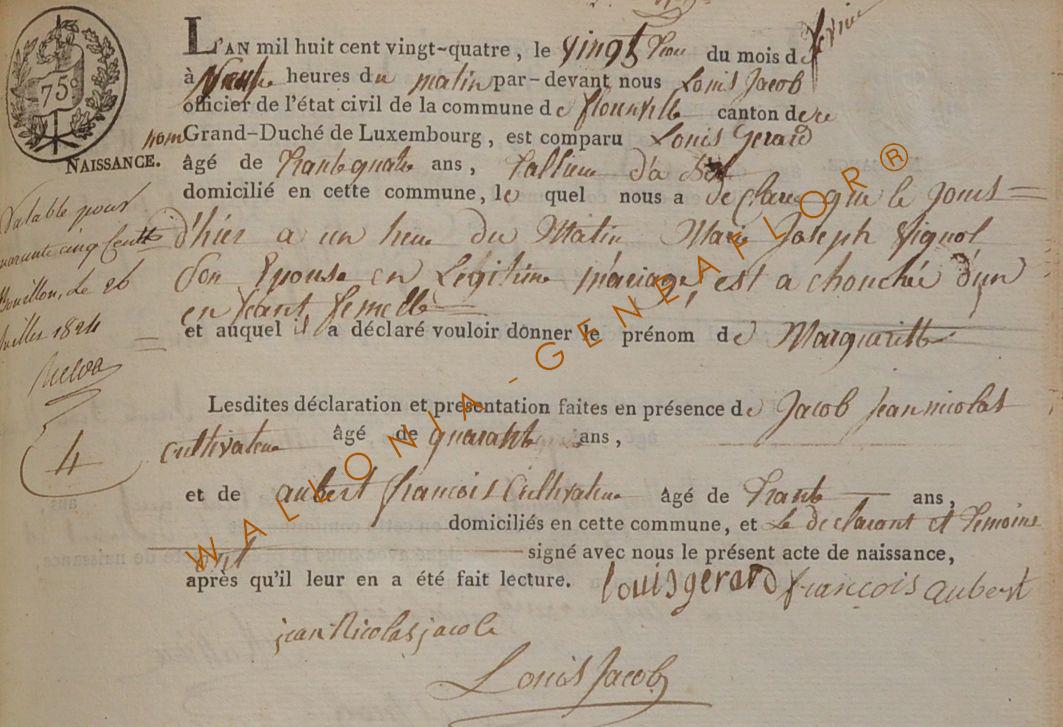 L'AN mil huit cent vingt-quatre, le vingt trois du mois de fevrier
à heures du matin par-devant nous Louis Jacob
officier de l'état civil de la commune de canton de
Grand-Duché de Luxembourg, est comparu Louis Gerard
NAISSANCE.
âgé de trante quatre ans,
domicilié en cette commune, le quel nous a declare que le jours
d'hier a un heure du Matin Marie Joseph Pignol
son Epouse en Legitime mariage, est a chouchée d'un
en feant femelle
et auquel il a déclaré vouloir donner le prénom de Marguaritte
Valable pour
quarante cinq Centt
Bouillon, Le 26
Juillet 1824
75
4
Lesdites déclaration et présentation faites en présence de Jacob Jean nicolas
cultivateur âgé de quarante ans,
et de aubert francois Cultivateur âgé de trante ans,
domiciliés en cette commune, et Le declarant et temoins
ont signé avec nous le présent acte de naissance,
après qu'il leur en a été fait lecture. louis gerard francois aubert
jean Nicolas jacob
Louis Jacob
WALLONIA-GENEAFLOR®